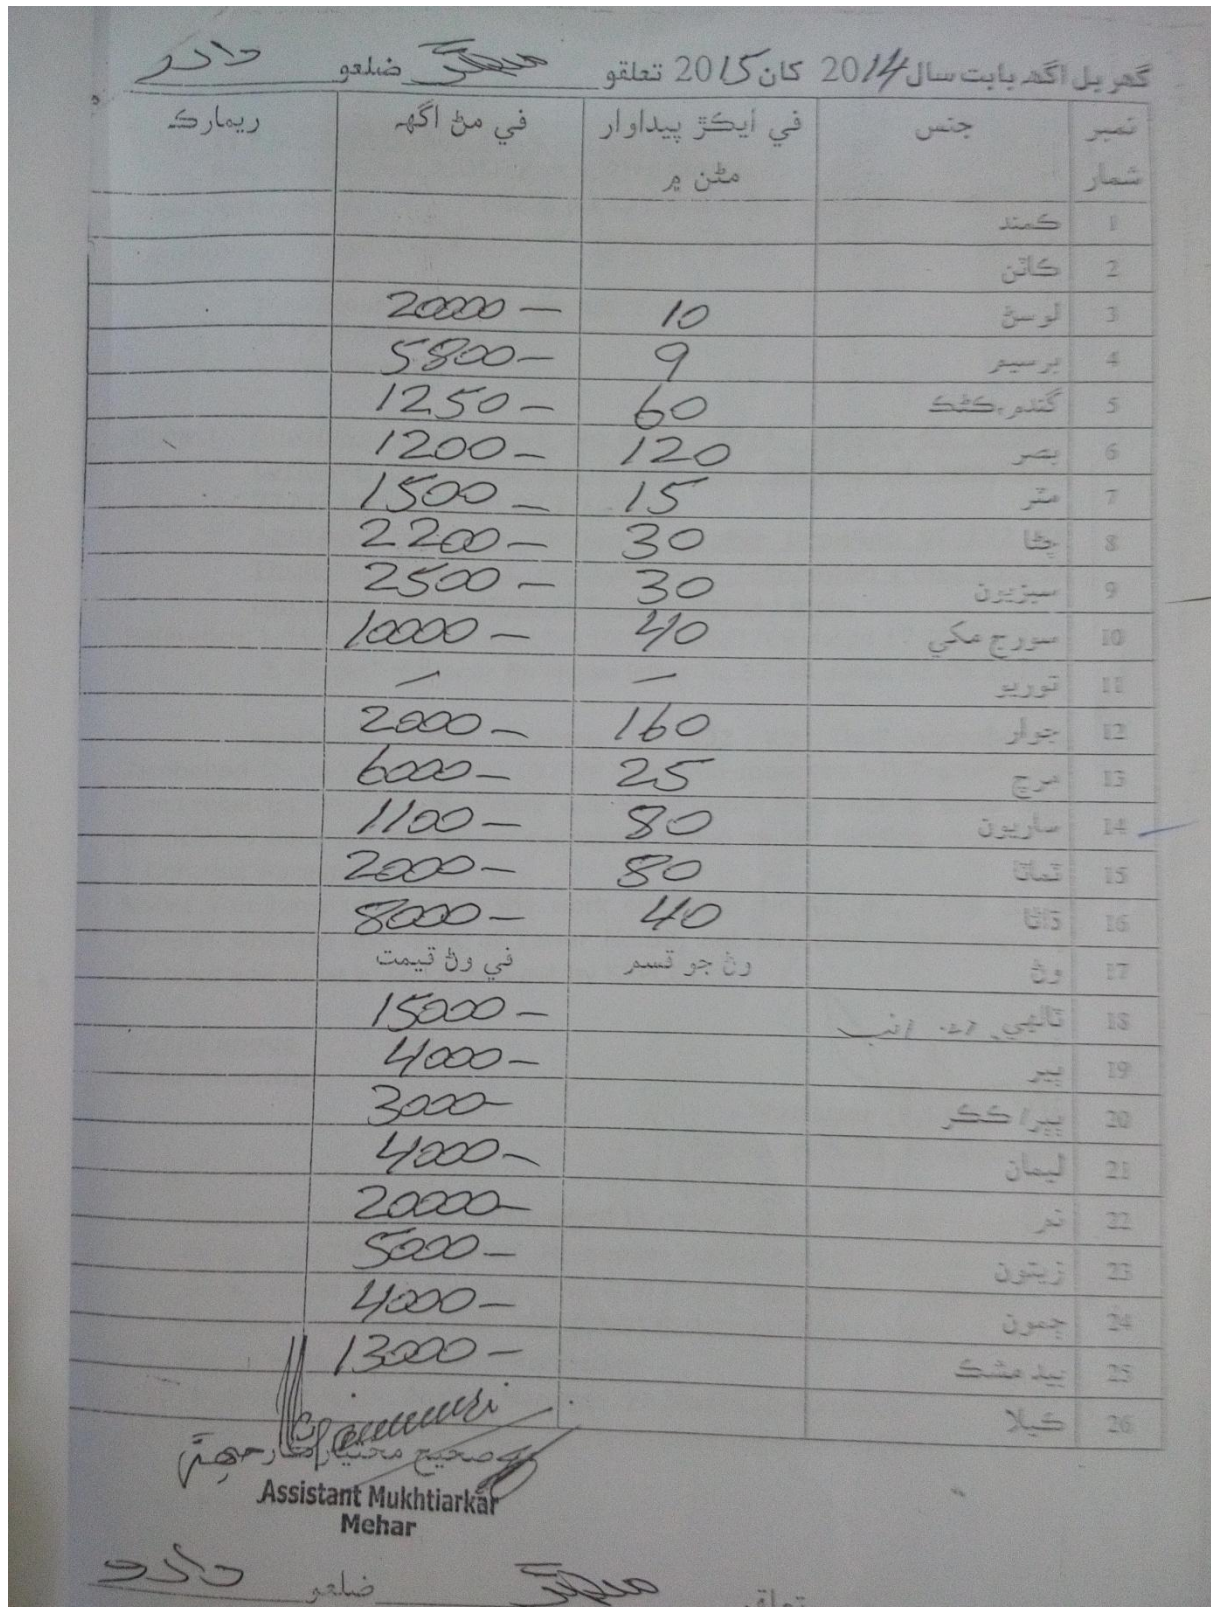 گهربل اگهه بابت سال 2014 کان 2015 تعلقو ميهڙ ضلعو دادو
نمبر شمار جنس في ايڪڙ پيداوار مڻن ۾ في مڻ اگهه ريمارڪ
1 ڪمند
2 ڪاٽن
3 لوسڻ 10 20000 —
4 برسيم 9 5800 —
5 گندم،ڪڻڪ 60 1250 —
6 بصر 120 1200 —
7 مٽر 15 1500 —
8 چڻا 30 2200 —
9 سبزيون 30 2500 —
10 سورج مکي 40 10000 —
11 توريو — —
12 جوار 160 2000 —
13 مرچ 25 6000 —
14 ساريون 80 1100 —
15 ٽماٽا 80 2000 —
16 ڌاڻا 40 8000 —
17 وڻ وڻ جو قسم في وڻ قيمت
18 ٽالهي، انب 15000 —
19 ٻير 4000 —
20 ٻٻر/ ڪڪر 3000 —
21 ليمان 4000 —
22 20000 —
23 زيتون 5000 —
24 ڄمون 4000 —
25 بيد مشڪ 13000 —
26 ڪيلا
صحيح مختيارڪار ميهڙ
Assistant Mukhtiarkar
Mehar
تعلقو ميهڙ ضلعو دادو